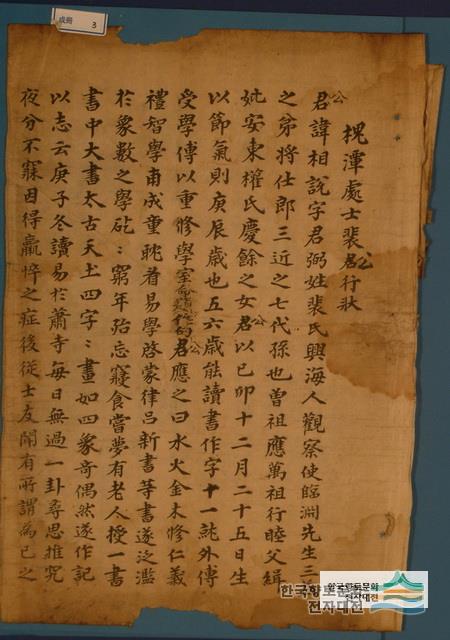 成冊 3
槐潭處士裴公君行狀
公君諱相說字君弼姓裴氏興海人觀察使臨淵先生三益
之弟將仕郎三近之七代孫也曾祖應萬祖行睦父緝
妣安東權氏慶餘之女公君以己卯十二月二十五日生
以節氣則庚辰歲也五六歲能讀書作字十一就外傅
受學傅以重修學室 公君應之曰水火金木修仁義
禮智學甫成童耽着易學啓蒙律呂新書等書遂泛濫
於象數之學矻〻窮年殆忘寢食嘗夢有老人授一書
書中大書太古天土四字〻畫如四象奇偶然遂作記
以志云庚子冬讀易於蕭寺每日無過一卦尋思推究
夜分不寐因得羸悴之症後從士友聞有所謂爲己之
한국향토문화
전자대전
한국향토문화
전자대전